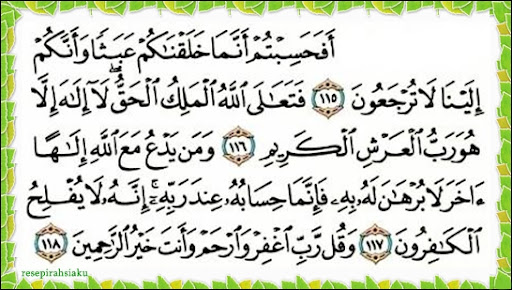 أَفَحَسِبْتُمْ أَنَّمَا خَلَقْنَٰكُمْ عَبَثًا وَأَنَّكُمْ
إِلَيْنَا لَا تُرْجَعُونَ ١١٥ فَتَعَٰلَى ٱللَّهُ ٱلْمَلِكُ ٱلْحَقُّ ۖ لَآ إِلَٰهَ إِلَّا
هُوَ رَبُّ ٱلْعَرْشِ ٱلْكَرِيمِ ١١٦ وَمَن يَدْعُ مَعَ ٱللَّهِ إِلَٰهًا
ءَاخَرَ لَا بُرْهَٰنَ لَهُۥ بِهِۦ فَإِنَّمَا حِسَابُهُۥ عِندَ رَبِّهِۦٓ ۚ إِنَّهُۥ لَا يُفْلِحُ
ٱلْكَٰفِرُونَ ١١٧ وَقُل رَّبِّ ٱغْفِرْ وَٱرْحَمْ وَأَنتَ خَيْرُ ٱلرَّٰحِمِينَ ١١٨
resepirahsiaku